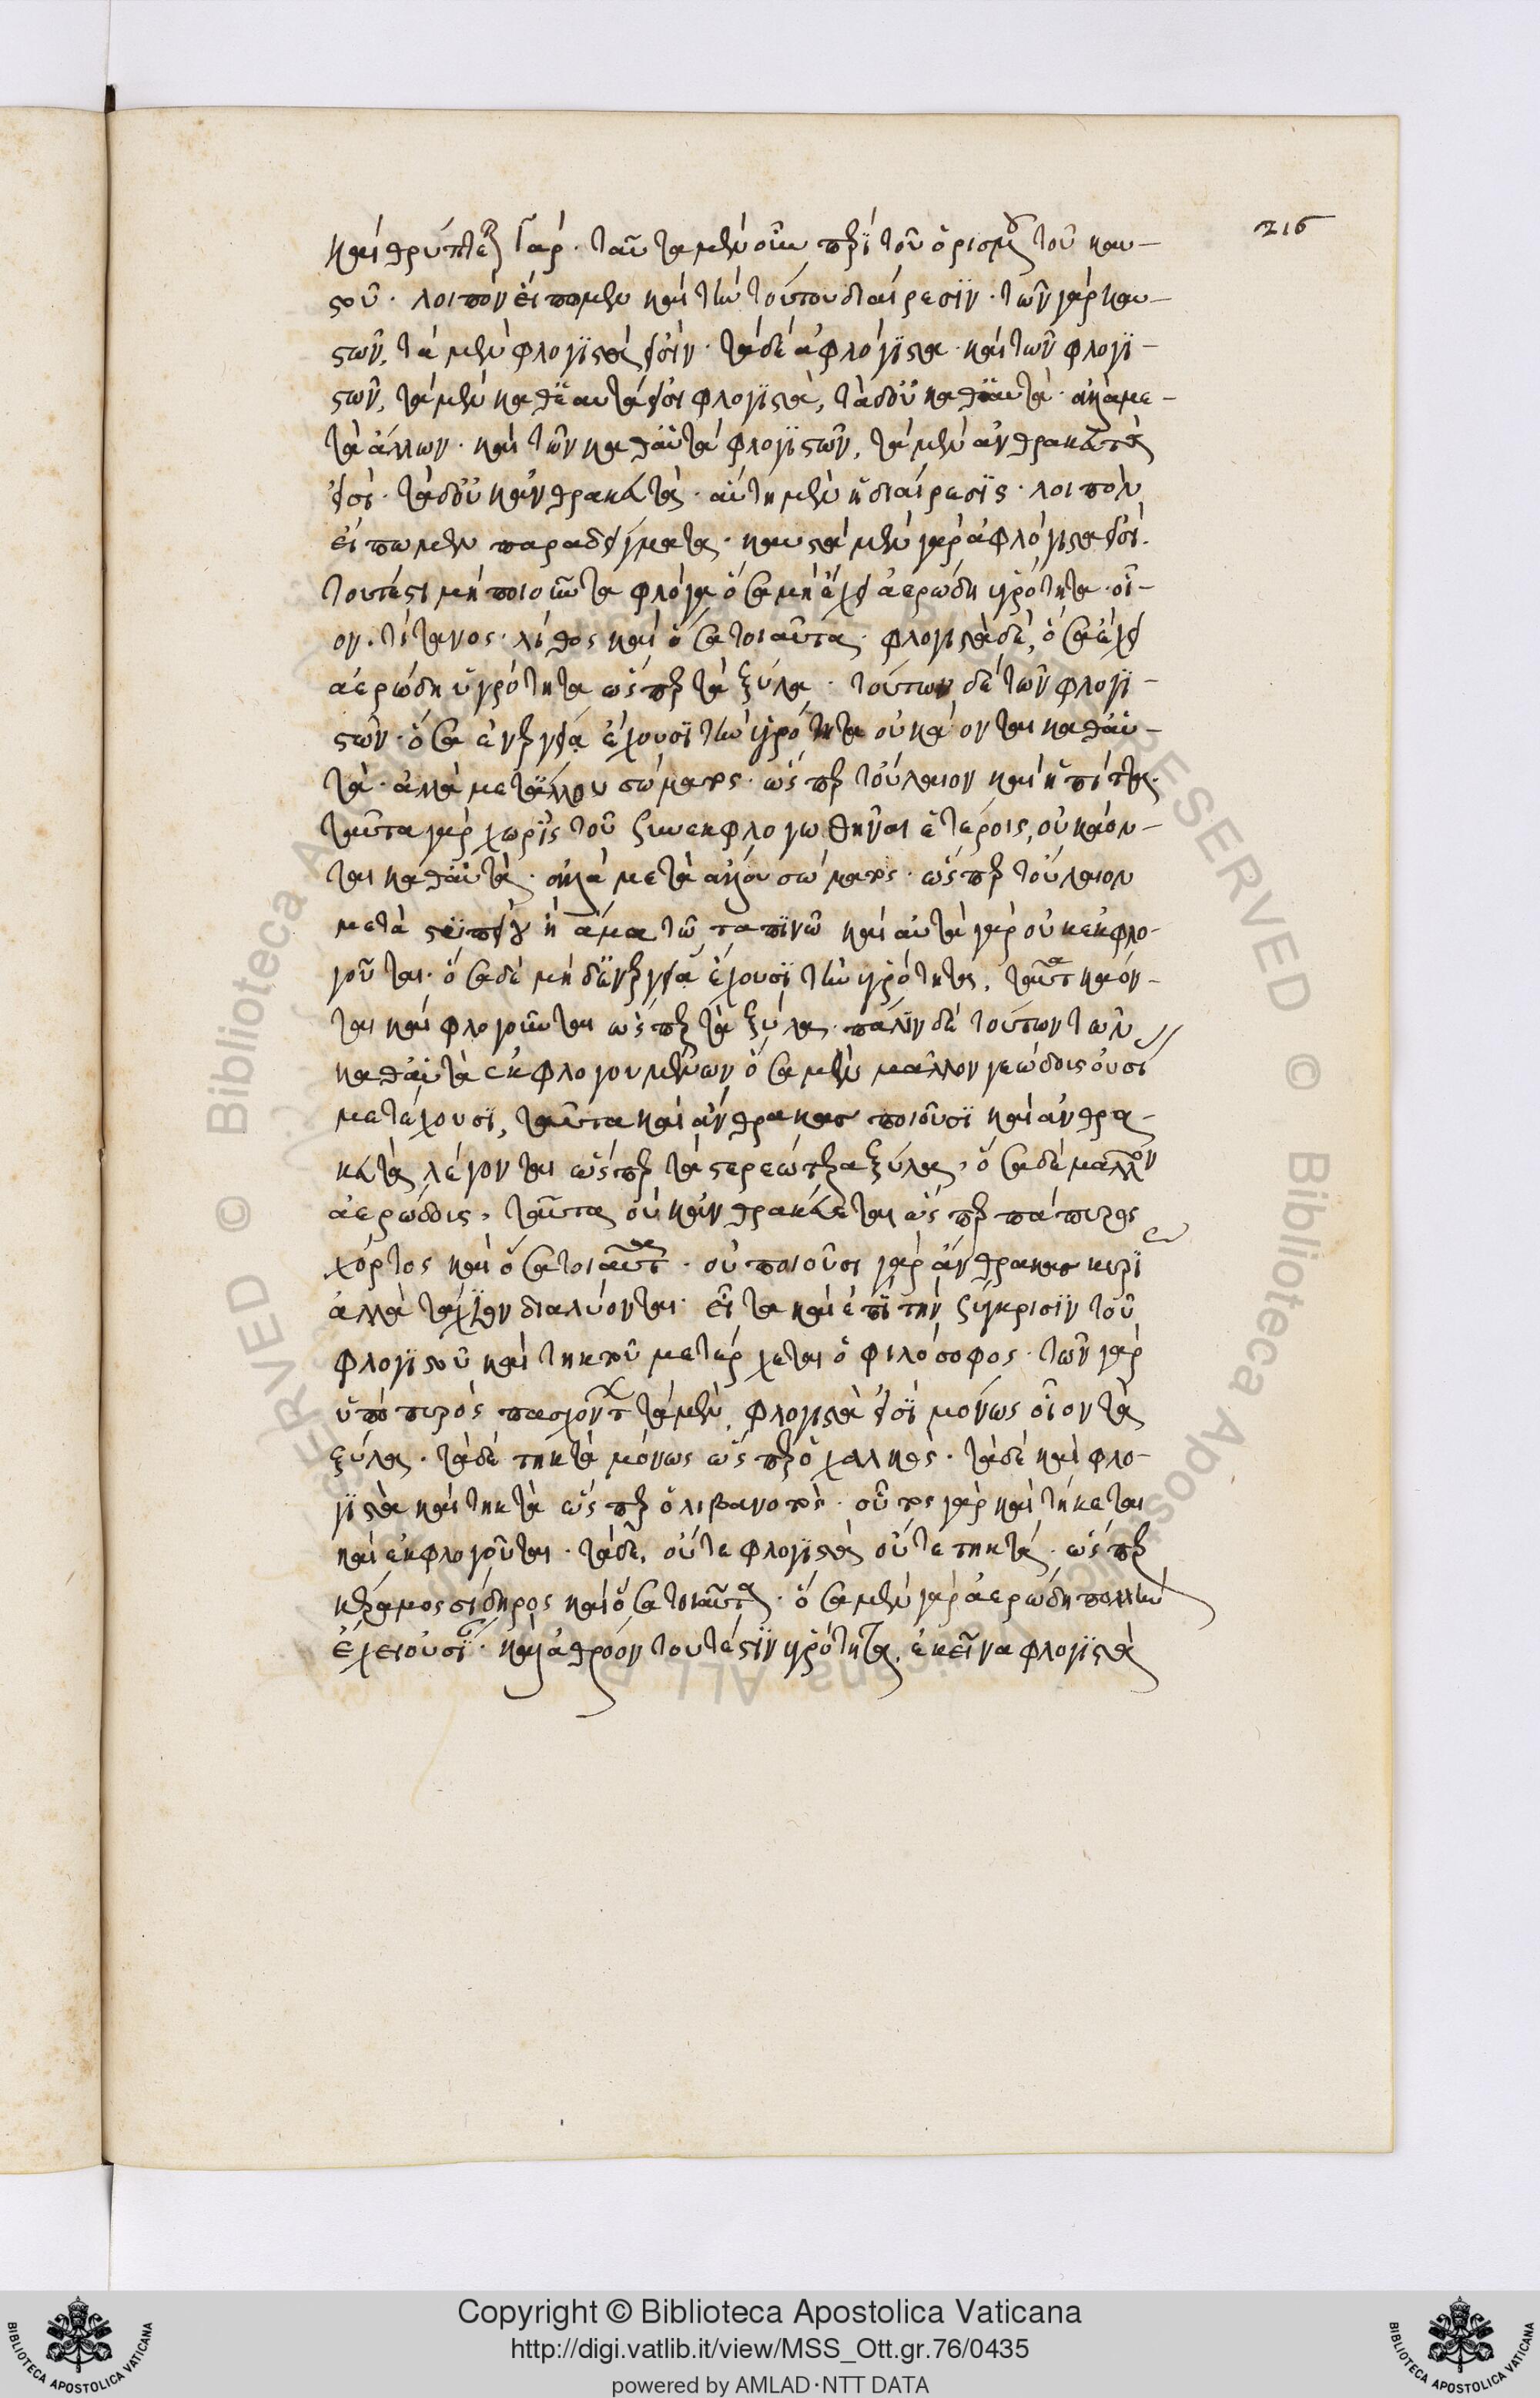 216
καὶ θρύπτεται γάρ. ταῦτα μὲν οὖν περὶ τοῦ ὁρισμοῦ τοῦ καυ-
στοῦ. λοιπὸν εἴπομεν καὶ τὴν τούτου διαίρεσιν. τῶν γὰρ καυ-
στῶν, τὰ μὲν φλογιστά εἰσιν. τὰ δὲ ἀφλόγιστα. καὶ τῶν φλογι-
στῶν, τὰ μὲν καθ' ἑαυτά εἰσι φλογιστὰ, τὰ δ' οὐ καθ' ἑαυτὰ. ἀλλὰ με-
τὰ ἄλλων. καὶ τῶν καθ' αὑτὰ φλογιστῶν, τὰ μὲν ἀνθρακευτά
εἰσι. τὰ δ' οὐκ ἀνθρακευτὰ. αὕτη μὲν ἡ διαίρεσις. λοιπὸν
εἴπωμεν παραδείγματα. καυστὰ μὲν γὰρ ἀφλόγιστά εἰσι.
τουτέστι μὴ ποιοῦντα φλόγα ὅσα μὴ ἔχει ἀερώδη ὑγρότητα. οἷ-
ον. τίτανος. λίθος καὶ ὅσα τοιαῦτα. φλογιστὰ δὲ, ὅσα ἔχει
ἀερώδη ὑγρότητα ὥσπερ τὰ ξύλα. τούτων δὲ τῶν φλογι-
στῶν. ὅσα ἐνεργείᾳ ἔχουσι τὴν ὑγρότητα οὐ κάονται καθ' αὑ-
τὰ. ἀλλὰ μετὰ ἄλλου σώματος. ὥσπερ τοὔλαιον καὶ ἡ πίττα.
ταῦτα γὰρ χωρὶς τοῦ συνεκφλογωθῆναι ἑτέροις, οὐ κάον-
ται καθ' αὑτὰ. ἀλλὰ μετὰ ἄλλου σώματος. ὥσπερ τοὔλαιον
μετὰ στιππείου ἢ ἅμα τῷ ταπινῷ καὶ αὐτὰ γὰρ οὐκ ἐκφλο-
γοῦται. ὅσα δὲ μὴ δ' ἐνεργείᾳ ἔχουσι τὴν ὑγρότητα, ταῦτα κάον-
ται καὶ φλογοῦνται ὥσπερ τὰ ξύλα. πάλιν δὲ τούτων τῶν
καθ' αὑτὰ ἐκφλογουμένων ὅσα μὲν μᾶλλον γεώδοις οὐσί
μετέχουσι, ταῦτα καὶ ἄνθρακας ποιοῦσι καὶ ἀνθρα-
κευτὰ λέγονται ὥσπερ τὰ στερεώτερα ξύλα, ὅσα δὲ μᾶλλον
ἀερώδοις, ταῦτα οὐκ ἀνθρακεύεται ὥσπερ πάπυρος
χόρτος καὶ ὅσα τοιαῦτα. οὐ ποιοῦσι γὰρ ἄνθρακας
ἀλλὰ τάχιον διαλύονται. εἶτα καὶ ἐπὶ τὴν σύγκρισιν τοῦ
φλογιστοῦ καὶ τηκτοῦ μετέρχεται ὁ φιλόσοφος. τῶν γὰρ
ὑπὸ πυρὸς πασχόντων τὰ μὲν, φλογιστὰ εἰσὶ μόνως οἷον τὰ
ξύλα. τὰ δὲ τηκτὰ μόνως ὥσπερ ὁ χαλκὸς. τὰ δὲ καὶ φλο-
γιστὰ καὶ τηκτὰ ὥσπερ ὁ λιβανοτὸς. οὗτος γὰρ καὶ τήκεται
καὶ ἐκφλογοῦται. τὰ δὲ, οὔτε φλογιστὰ οὔτε τηκτά. ὥσπερ
κέραμος σίδηρος καὶ ὅσα τοιαῦτα. ὅσα μὲν γὰρ ἀερώδη πολλὴν
καὶ ἀθρόον τουτέστιν ὑγρότητα, ἐκεῖνα φλογιστὰ
Copyright © Biblioteca Apostolica Vaticana
http://digi.vatlib.it/view/MSS_Ott.gr.76/0435
powered by AMLAD·NTT DATA
BIBLIOTECA APOSTOLICA VATICANA
BIBLIOTECA APOSTOLICA VATICANA